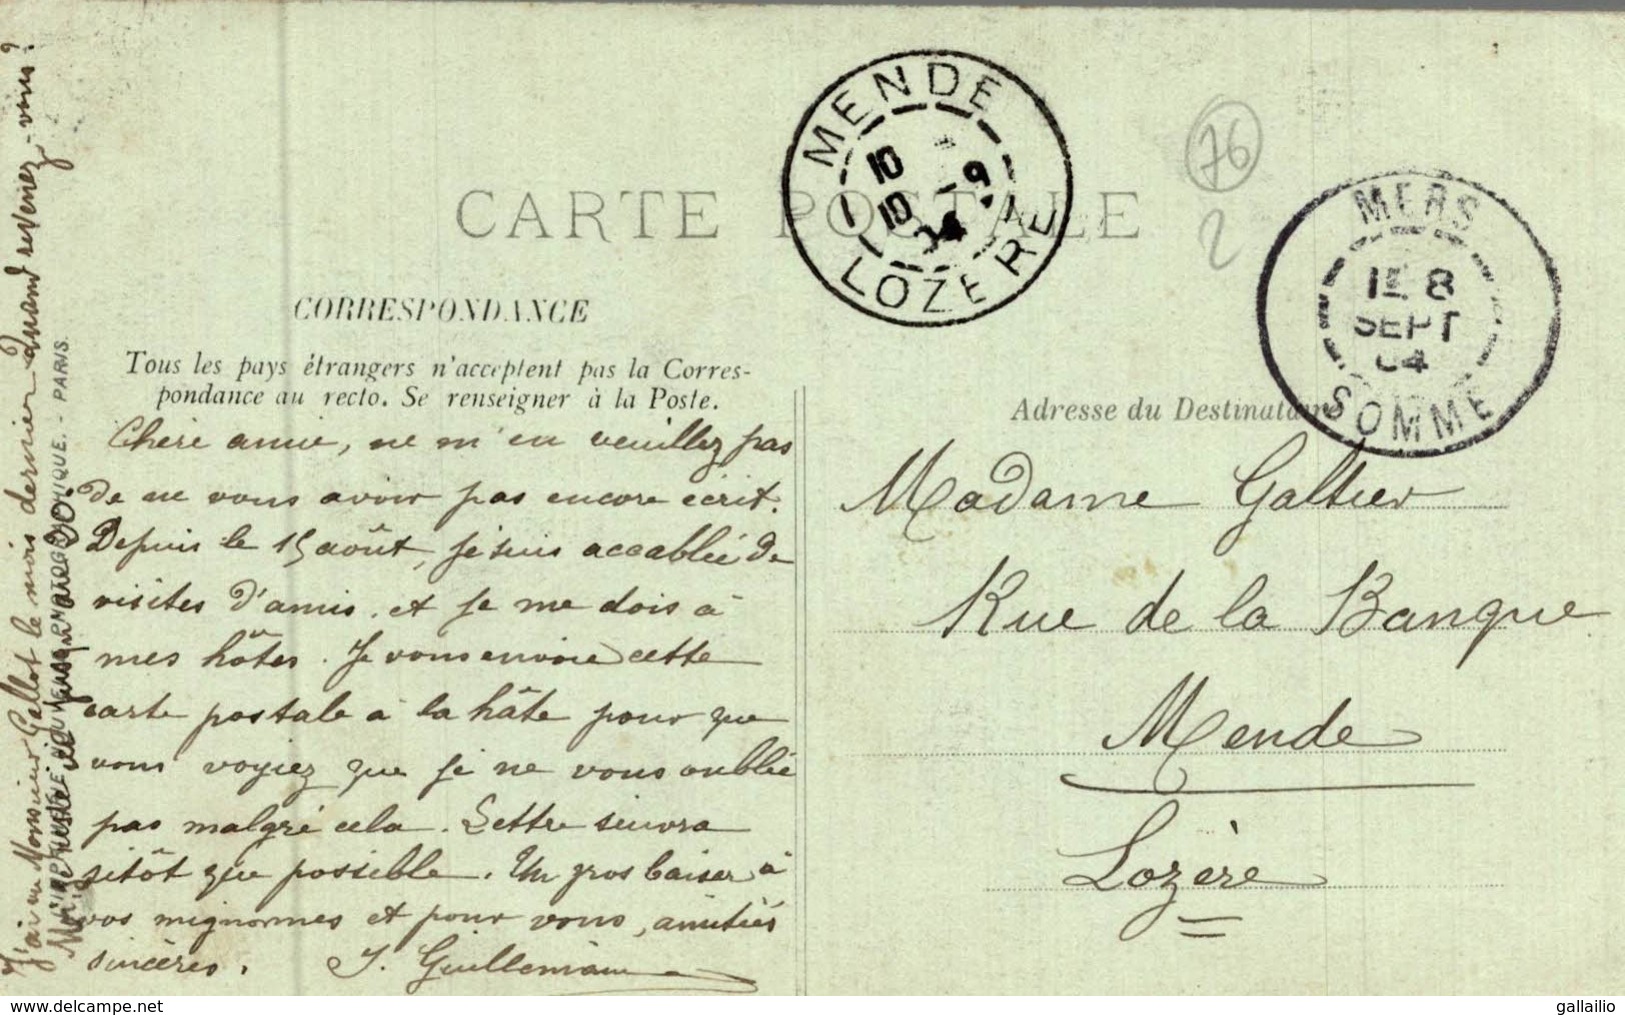 CARTE POSTALE
MENDE
10 9
10 04
LOZERE
76
2
MERS
1E 8
SEPT
04
SOMME
CORRESPONDANCE
Tous les pays étrangers n'acceptent pas la Corres-
pondance au recto. Se renseigner à la Poste.
Chère amie, ne m'en veuillez pas
de ne vous avoir pas encore écrit.
Depuis le 15 août, je suis accablée de
visites d'amis, et je me dois à
mes hôtes. Je vous envoie cette
carte postale à la hâte pour que
vous voyiez que je ne vous oublie
pas malgré cela. Lettre suivra
sitôt que possible. Un gros baiser à
vos mignonnes et pour vous, amitiés
sincères. J. Guillemain
J'ai vu Monsieur Gallot le mois dernier. Quand revenez-vous?
Moi je reste ici jusqu'au 30.
PARIS.
Adresse du Destinataire
Madame Galtier
Rue de la Banque
Mende
Lozère
gallailio